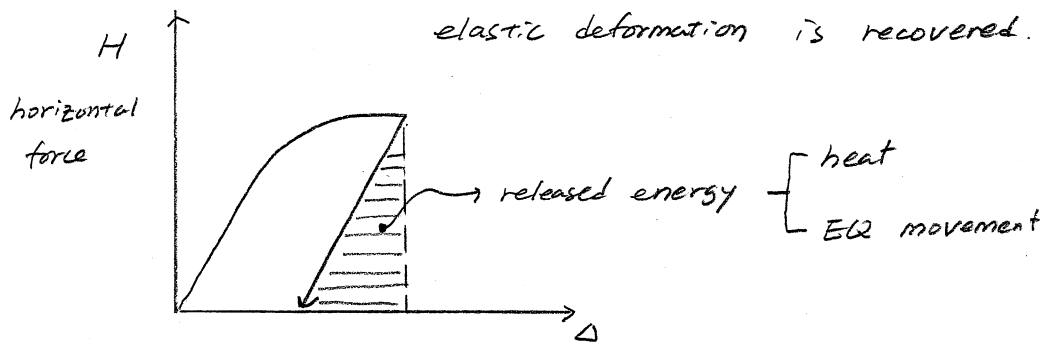 elastic deformation is recovered.
H
horizontal
force
released energy
heat
EQ movement
Δ